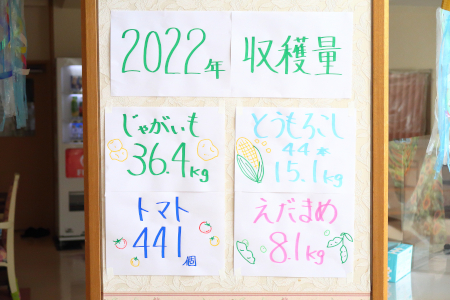 2022年 収穫量
じゃがいも
36.4kg
とうもろこし
44本
15.1kg
トマト
441個
えだまめ
8.1kg